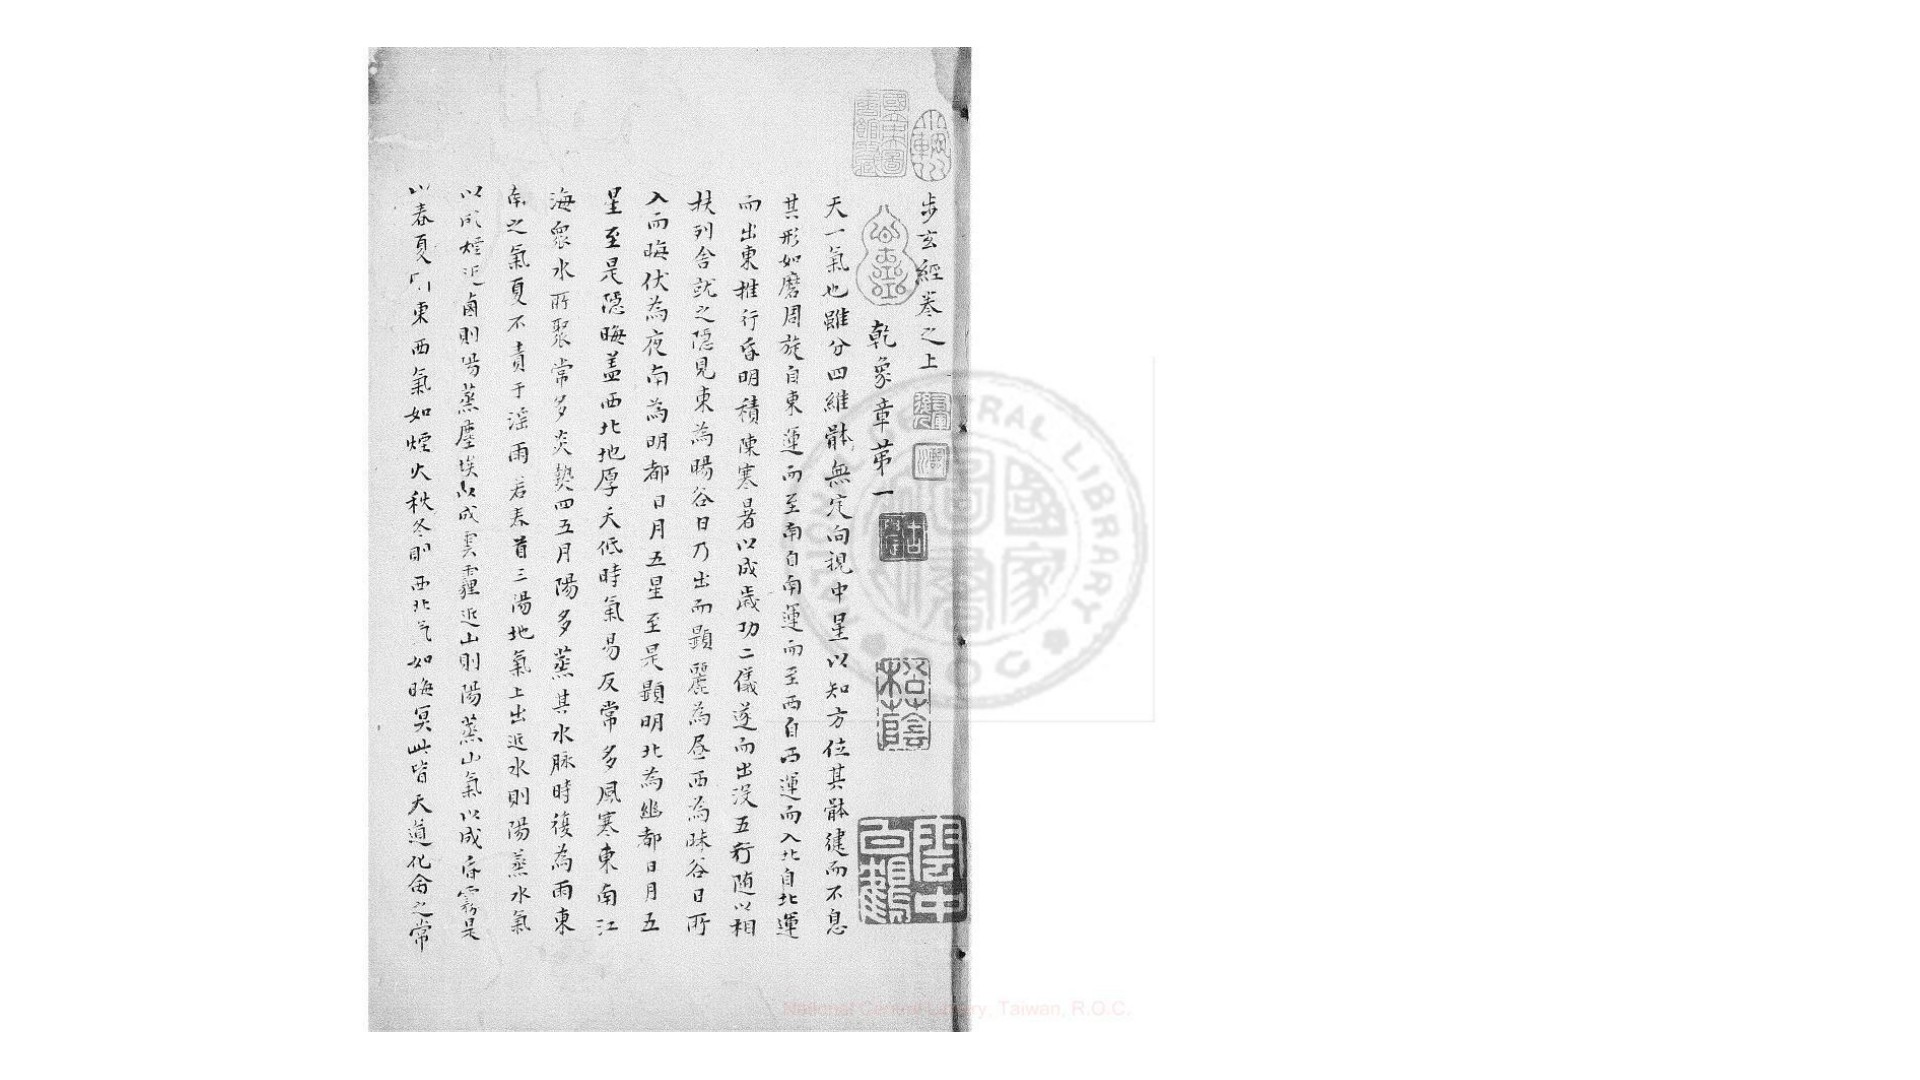 步玄經卷之上
乾象章第一
天一氣也雖分四維骵無定向視中星以知方位其骵健而不息
其形如磨周旋自東運而至南自南運而至西自西運而入北自北運
而出東推行昏明積陳寒暑以成歲功二儀遂而出沒五行随以相
扶列舍就之隱見東為暘谷日乃出而顯麗為昼西為昧谷日所
入而晦伏為夜南為明都日月五星至是顯明北為幽都日月五
星至是隱晦盖西北地厚天低時氣易反常多風寒東南江
海衆水所聚常多炎熱四五月陽多蒸其水脉時復為雨東
南之氣夏不責于滛雨若春首三陽地氣上出近水則陽蒸水氣
以成煙泥鹵則陽蒸塵埃以成雲霾近山則陽蒸山氣以成昏霧是
以春夏則東西氣如煙火秋冬則西北气如晦冥此皆天道化命之常
國家圖書館藏
松蔭
雲中白鶴
NATIONAL CENTRAL LIBRARY, R.O.C.
國家圖書
National Central Library, Taiwan, R.O.C.